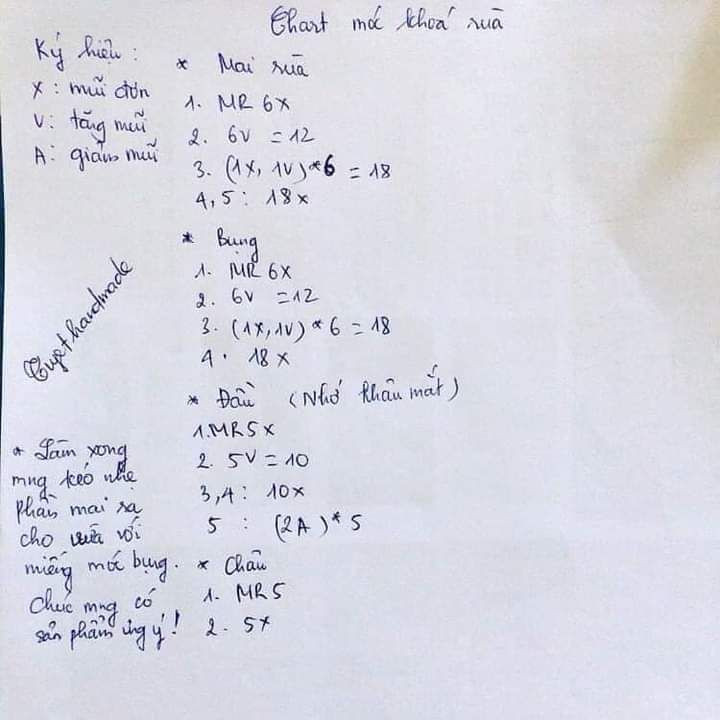 Chart móc khoá rùa
Ký hiệu :
X : mũi đơn
V : tăng mũi
A : giảm mũi
* Mai rùa
1. MR 6x
2. 6V = 12
3. (1x, 1V)*6 = 18
4,5 : 18x
* Bụng
1. MR 6x
2. 6V = 12
3. (1x, 1V) * 6 = 18
4. 18x
* Đầu (Nhớ khâu mắt)
1. MR5x
2. 5V = 10
3,4 : 10x
5 : (2A)* 5
* Chân
1. MR5
2. 5x
Tuyet handmade
* Làm xong
mng kéo nhẹ
phần mai ra
cho vừa với
miếng móc bụng.
Chúc mng có
sản phẩm ưng ý !